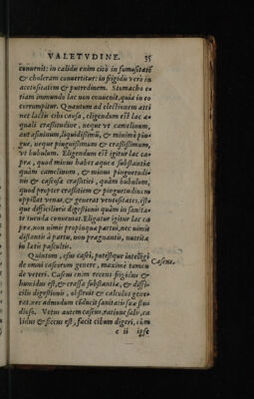 VALETVDINE. 35
conuenit: in calidū enim citò in fumositatē
& choleram conuertitur: in frigido verò in
acetositatem & putredinem. Stomacho e-
tiam immundo lac non conuenit, quia in eo
corrumpitur. Quantum ad electionem atti
net lactis cibi causa, eligendum est lac æ-
quali crassitudine, neque vt camelinum,
aut asininum, liquidissimū, & minimè pin-
gue, neque pinguissimum & crassissimum,
vt bubulum. Eligendum est igitur lac ca-
præ, quod minus habet aqueæ substantiæ
quàm camelinum, & minus pinguetudi-
nis & caseosæ crassitiei, quàm bubulum,
quod propter crassitiem & pinguetudinem
oppillat venas, & generat ventositates, est-
que difficilioris digestionis quàm in sanita-
te tuenda conueniat. Eligatur igitur lac ca
præ, non nimis propinquæ partui, nec nimis
distantis à partu, non prægnantis, nutritæ
in lætis pascuis.
Quintum, esus casei, potestque intelligi
de omni caseorum genere, maximè tamen
de veteri. Caseus enim recens frigidus &
humidus est, & crassæ substantiæ, & diffi-
cilis digestionis, obstruit & calculos gene-
rat, nec admodum cōducit sanitati suæ stu
dioso. Vetus autem caseus, ratione salis, ca
lidus & siccus est, facit cibum digeri, cùm
Caseus.
e ii ipse